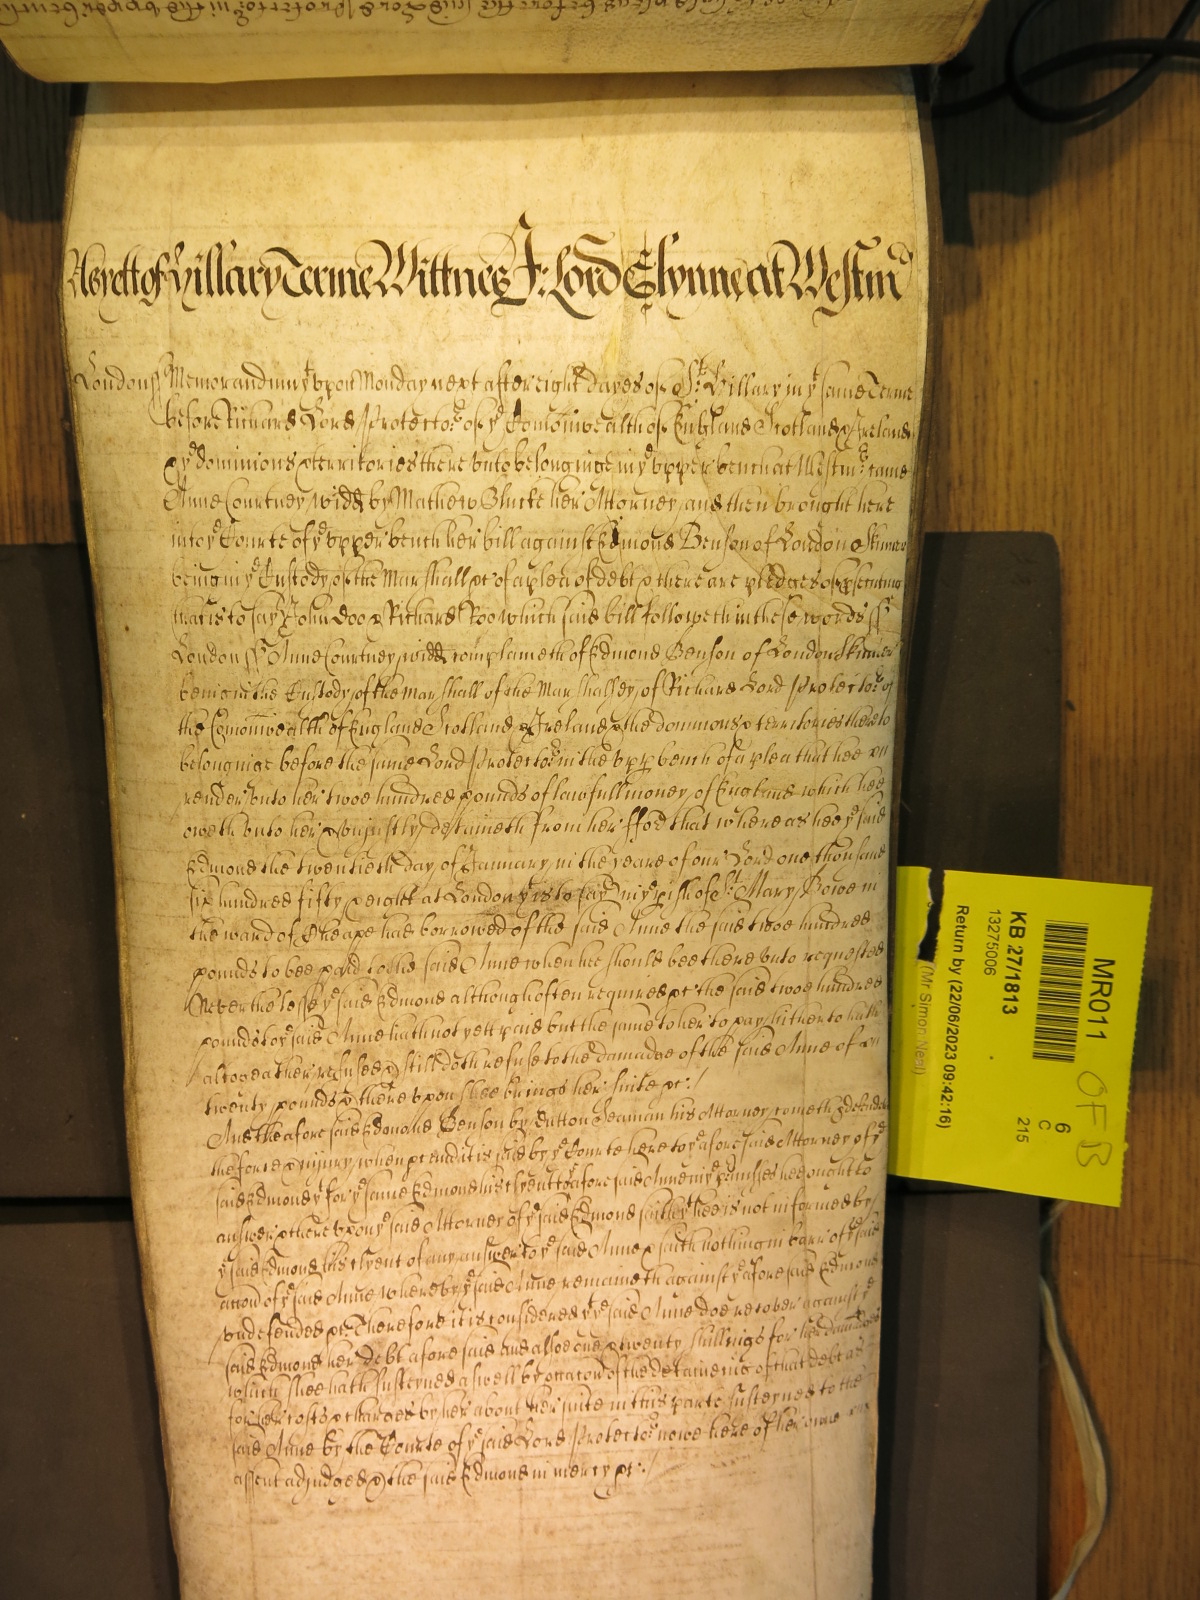 As yett of Hillary Terme Wittnes Jo: Lord Glynne at Westmr
London ss Memorandum yt upon Monday next after eight dayes of St Hillary in ye same Terme
before Richard Lord Protector of ye Comonwealth of England Scotland & Ireland
& ye dominions & territories there unto belonginge in ye upper bench at Westmr came
Anne Courtney widd by Mathew Blucke her Attorney and then brought here
into ye Courte of ye upper bench her bill against Edmond Benson of London Skinner
being in ye Custody of the Marshall &c of a plea of debt & there are pledges of psecuting
that is to say John Doo & Richard Roo which said bill followeth in these words ss
London ss Anne Courtney widd complaineth of Edmond Benson of London Skinner
being in the Custody of the Marshall of the Marshalsey of Richard Lord Protector of
the Comonwealth of England Scotland & Ireland & the dominions & territories thereto
belonginge before the same Lord Protector in the upp bench of a plea that hee
render unto her twoe hundred pounds of lawfull money of England which hee
oweth unto her & unjustly detaineth from her ffor that whereas hee ye said
Edmond the twentieth day of January in the yeare of our Lord one thousand
six hundred fifty & eight at London yt is to say in ye pish of St Mary Bowe in
the ward of Cheape had borrowed of the said Anne the said twoe hundred
pounds to bee paid to the said Anne when hee should bee there unto requested
Neverthelesse ye said Edmond although often required &c the said twoe hundred
pounds to ye said Anne hath not yett paid but the same to her to pay hitherto hath
altogeather refused & still doth refuse to the damadge of the said Anne of
twenty pounds & thereupon shee brings her suite &c:/
And the aforesaid Edmond Benson by Dutton Seaman his Attorney cometh & defendeth
the force & injury when &c and it is said by ye Courte here to ye aforesaid Attorney of ye
said Edmond yt for ye same Edmond his clyent to ye aforesaid Anne in ye pmisses hee ought to
answer & thereupon ye said Attorney of ye said Edmond saith yt hee is not informed by
ye said Edmond his clyent of any answer to ye said Anne & saith nothing in barr of ye said
accon of ye said Anne whereby ye said Anne remaineth against ye aforesaid Edmond
undefended &c Therefore it is considered yt ye said Anne doe recover against ye
said Edmond her debt aforesaid and alsoe one & twenty shillings for her damages
which shee hath susteyned aswell by occacon of the deteineing of that debt as
for her costs & charges by her about her suite in this parte susteyned to the
said Anne by the Courte of ye said Lord Protector nowe here of her owne
assent adjudged & the said Edmond in mercy &c:/
MR011
KB 27/1813
13275006
Return by (22/06/2023 09:42:16)
(Mr Simon Neal)
6
C
215
OFB